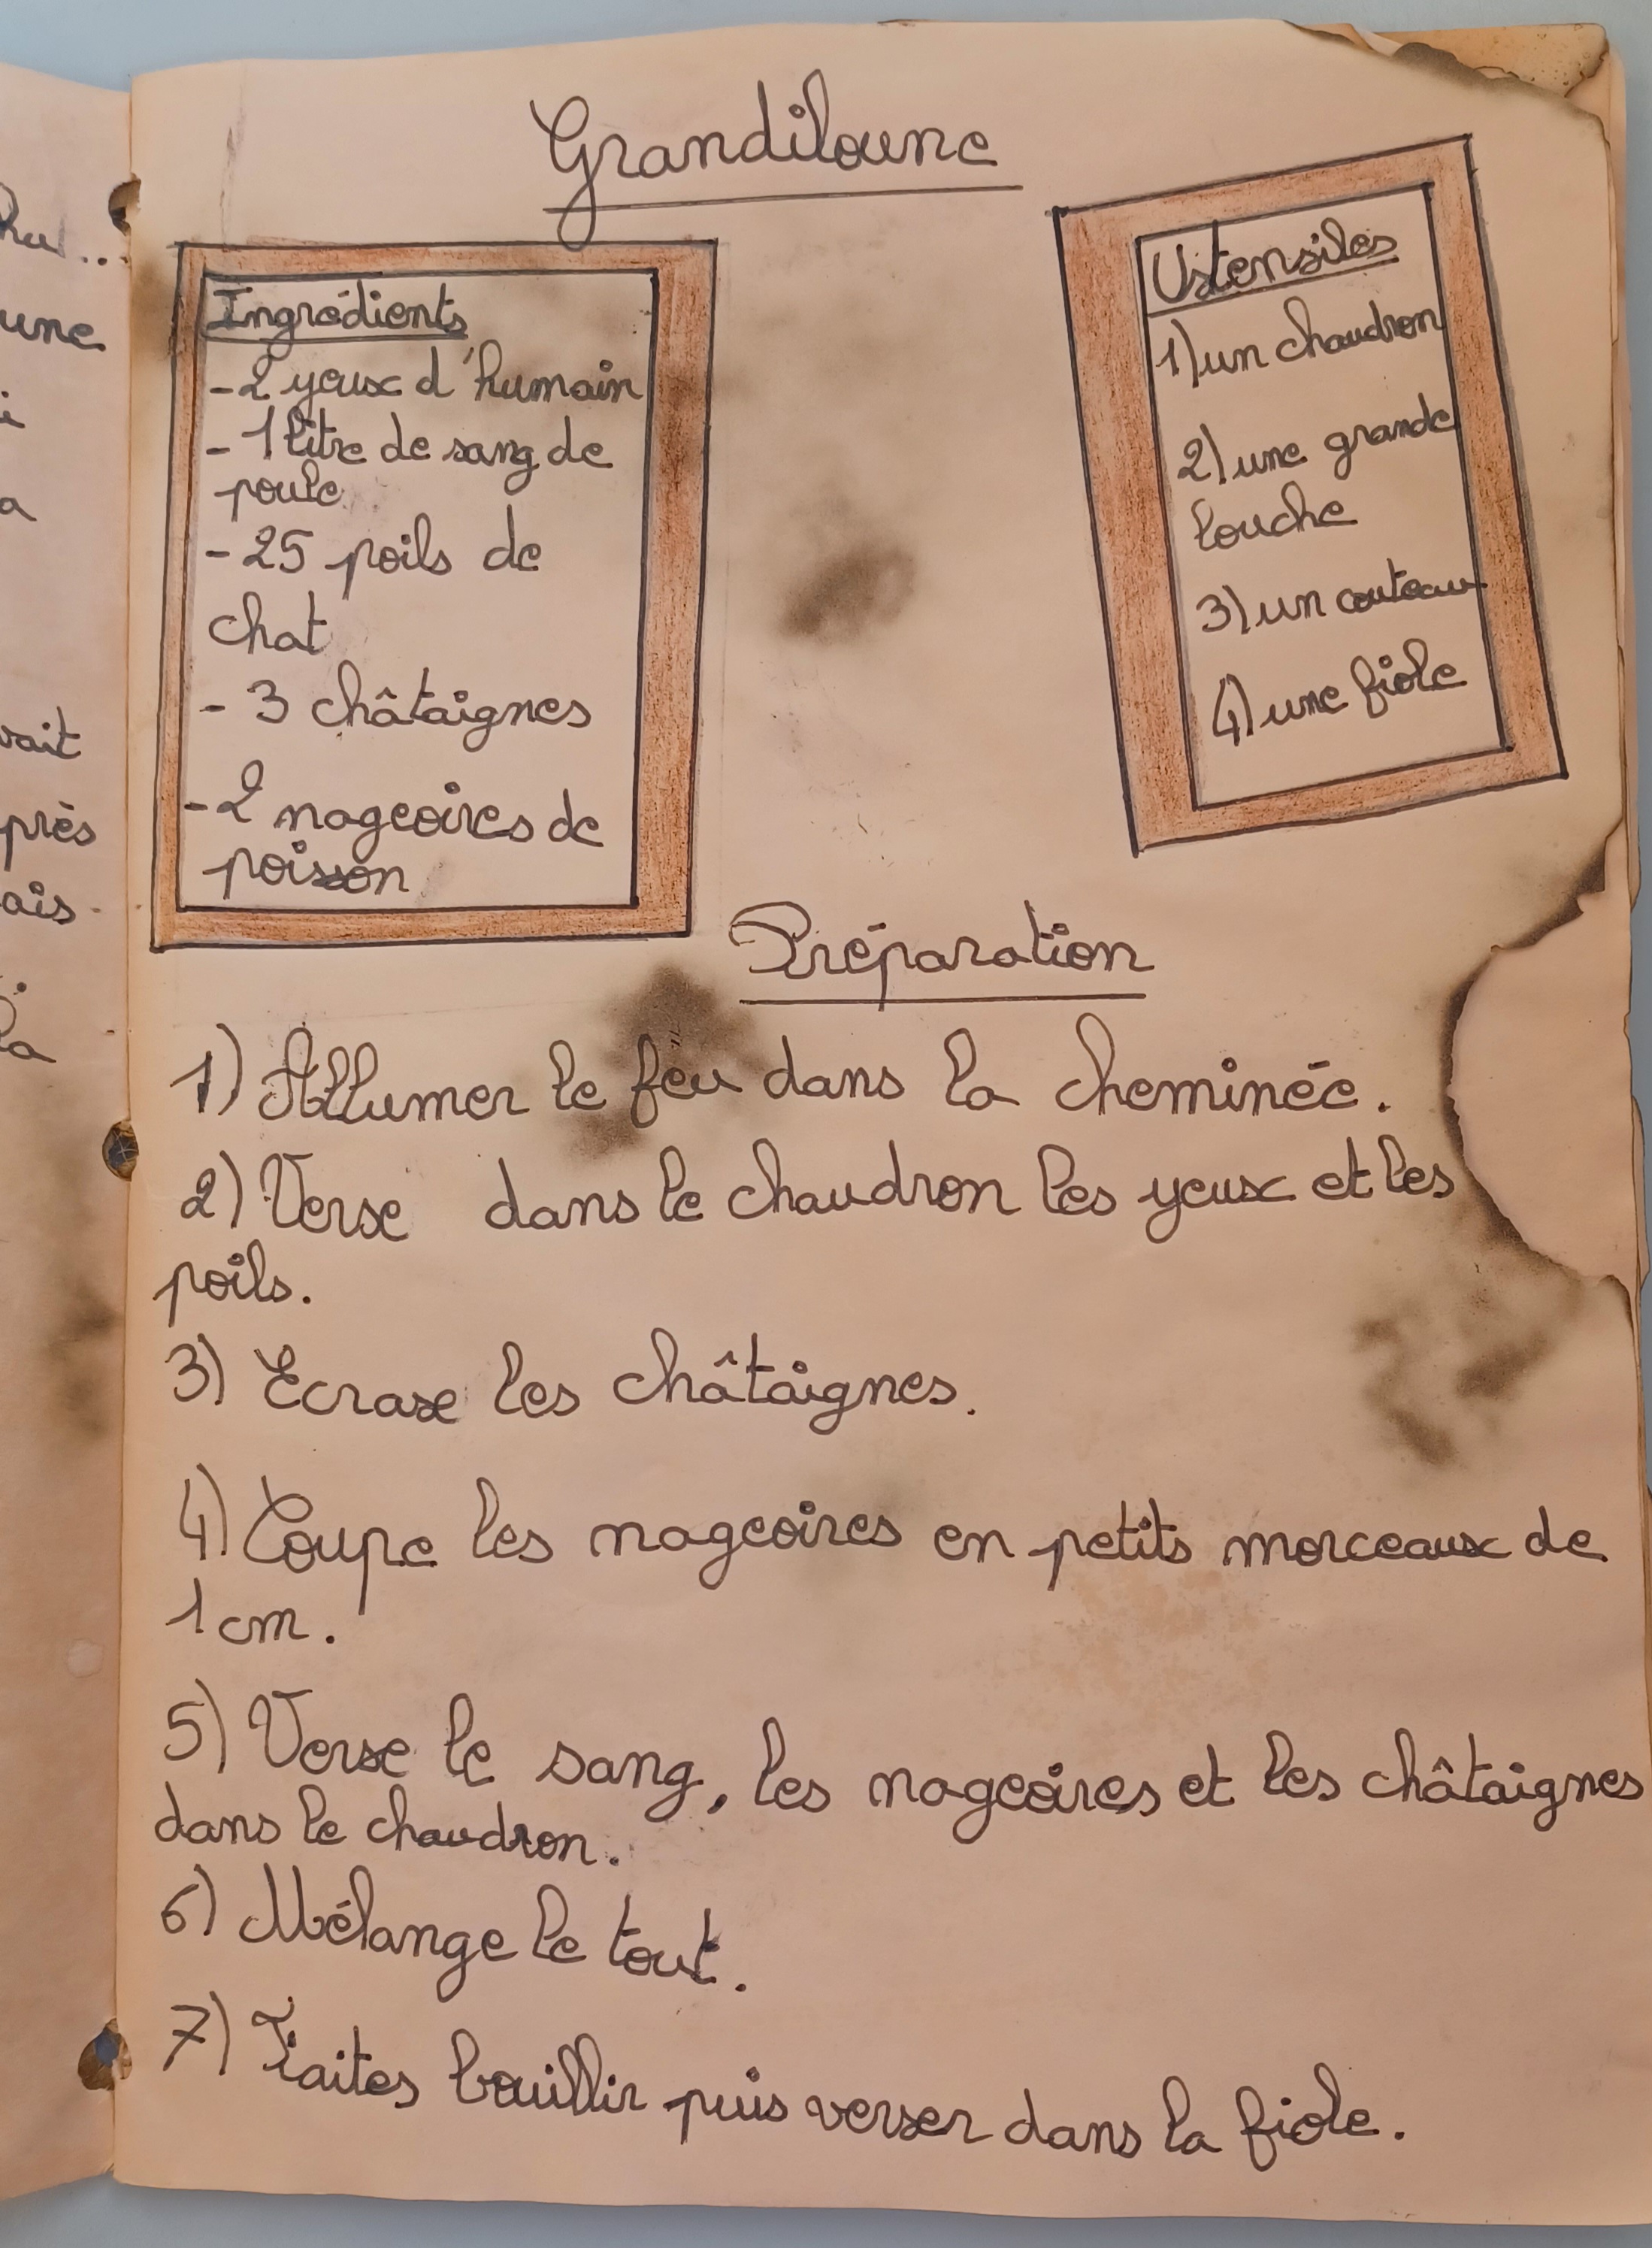 Grandiloune
Ingrédients
-2 yeux d'humain
- 1 litre de sang de
poule
- 25 poils de
chat
- 3 châtaignes
-2 nageoires de
poisson
Ustensiles
1) un chaudron
2) une grande
louche
3) un couteau
4) une fiole
Préparation
1) Allumer le feu dans la cheminée.
2) Verse dans le chaudron les yeux et les
poils.
3) Ecrase les châtaignes.
4) Coupe les nageoires en petits morceaux de
1 cm.
5) Verse le sang, les nageoires et les châtaignes
dans le chaudron.
6) Mélange le tout.
7) Faites bouillir puis verser dans la fiole.